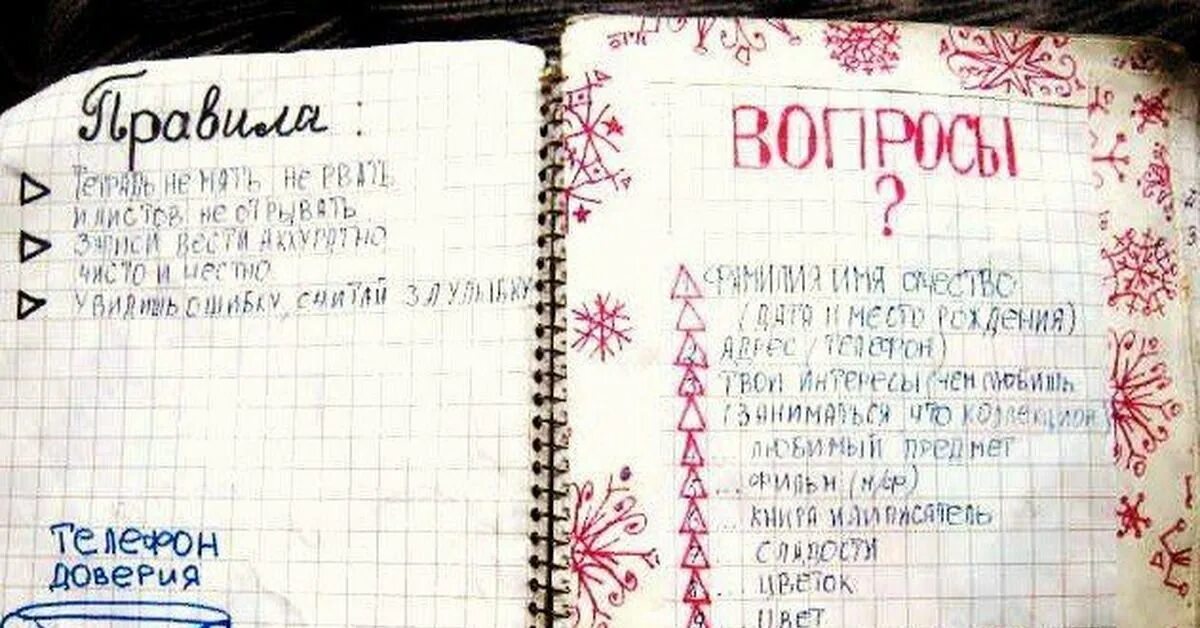 Правила:
Тетрадь не мять не рвать
и листов не отрывать
Записи вести аккуратно
чисто и честно
Увидишь ошибку, считай за улыбку
Телефон
доверия
ВОПРОСЫ
?
Фамилия имя очество
(дата и место рождения)
2 Адрес (телефон)
3 Твои интересы (чем любишь
(заниматься что коллекцион)
... любимый предмет
5 ... фильм (м/ф)
6 ... книга или писатель
7 ... сладости
8 ... цветок
9 ... цвет